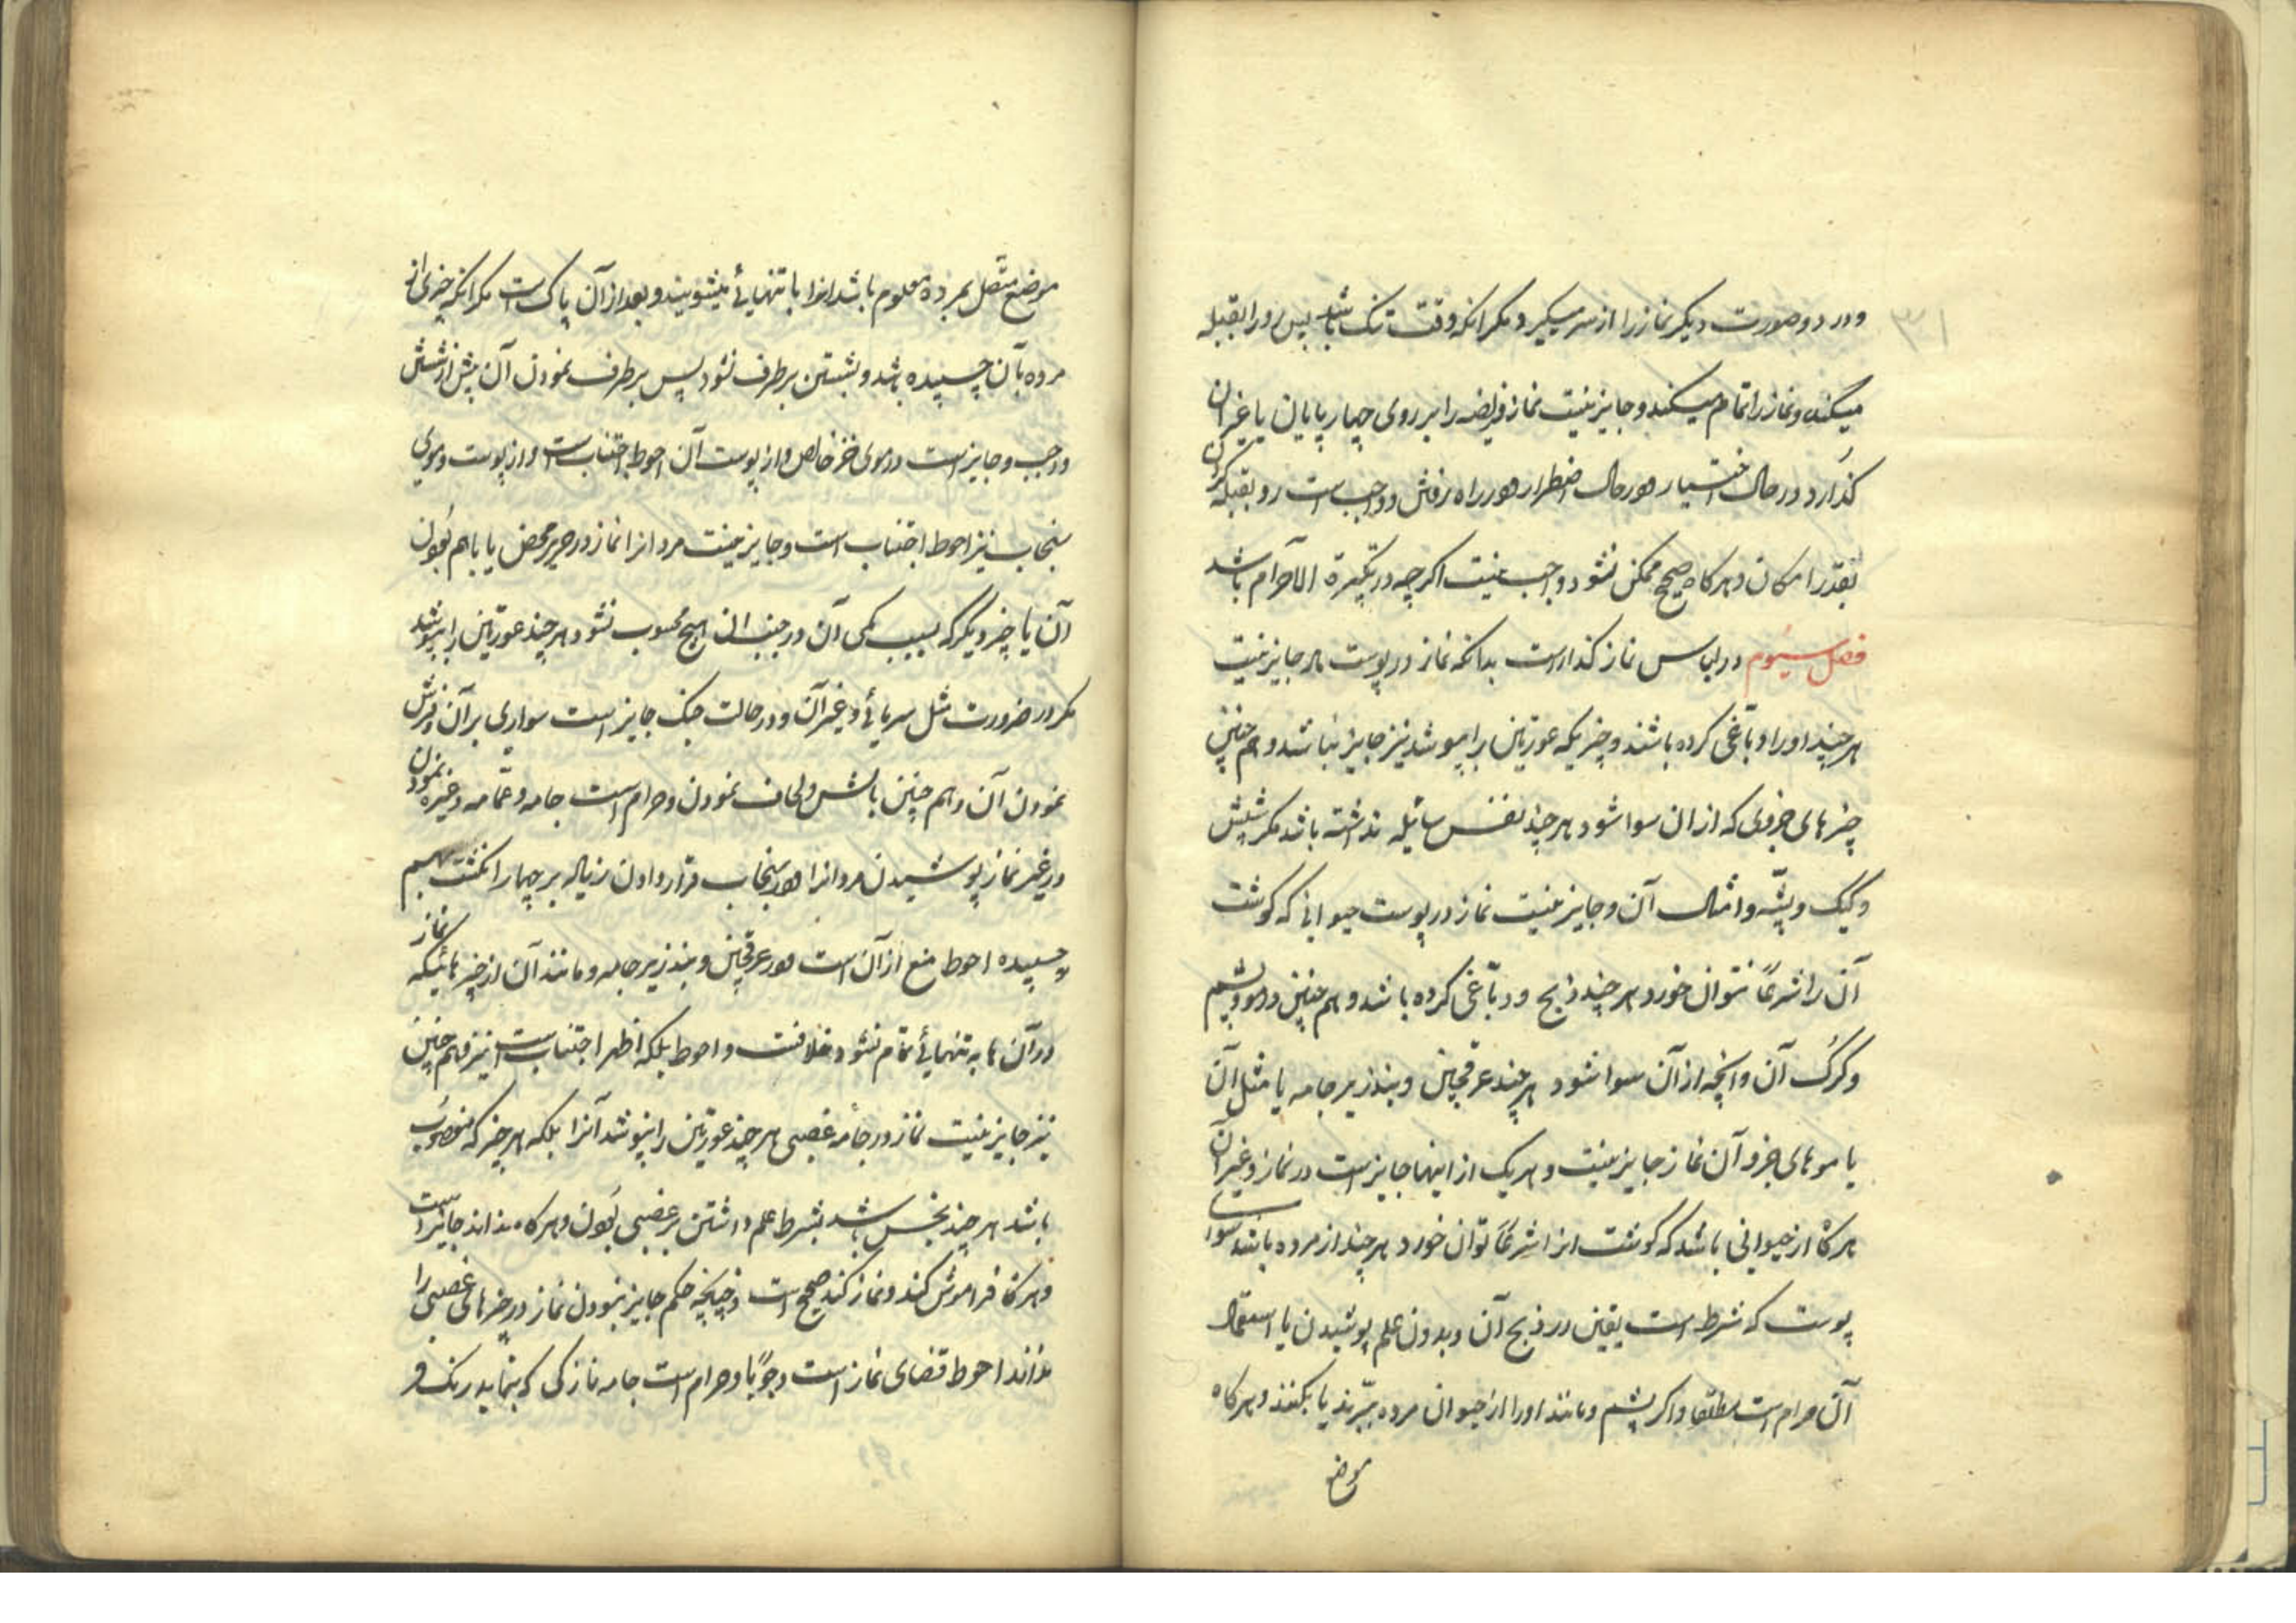 ۳۱
و در دو صورت دیکر نماز را از سر میکیرد مکر انکه وقت تنک باشد پس رو را بقبله
میکند و نماز را تمام میکند و جایز نیست نماز فریضه را بر روی چهار پایان یا غیر ان
کذارد در حال اختیار و در حال اضطرار و در راه رفتن و واجب است رو بقبله کردن
بقدر امکان و هر کاه صحیح ممکن نشود واجب نیست اکر چه در تکبیرة الاحرام باشد
فصل سیوم در لباس نماز کذار است بدانکه نماز در پوست مردار جایز نیست
هر چند او را دباغی کرده باشند و چیزیکه عورتین را بپوشد نیز جایز نباشد و هم چنین
چیزهای جزوی که از ان سوا شود هر چند نفس سائله نداشته باشد مکر شپش
و کیک و پشّه و امثال آن و جایز نیست نماز در پوست حیوانی که کوشت
آن را شرعاً نتوان خورد هر چند ذبح و دبّاغی کرده باشد و هم چنین در مو و پشم
و کرک آن و آنچه از آن سوا شود هر چند عرقچین و بند زیر جامه یا مثل آن
یا موهای جزو آن نماز جایز نیست و هر یک از اینها جایز است در نماز و غیر آن
هر کاه از حیوانی باشد که کوشت انرا شرعاً توان خورد هر چند از مرده باشد سوای
پوست که شرط است یقین در ذبح آن و بدون علم پوشیدن یا استعمال
آن حرام است مطلقا و اکر پشم و مانند او را از حیوان مرده ببّرند یا بکنند و هر کاه
موضع
موضع متّصل بمرده معلوم باشد انرا با تنهائی میشویند و بعد از آن پاک است مکر انکه چیزی از
مرده بآن چسپیده باشد و بشستن بر طرف نشود پس بر طرف نمودن آن پیش از شستن
واجب و جایز است در موی خز خالص و از پوست آن احوط اجتناب است و از پوست و موی
سنجاب نیز احوط اجتناب است و جایز نیست مردانرا نماز در حریر محض یا باهم بودن
آن یا چیز دیکر که بسبب کمی آن در جنب انی هیچ محسوب نشود هر چند عورتین را نپوشد
مکر در ضرورت مثل سرمائی و غیر آن و در حالت جنک جایز است سواری بر آن و فرش
نمودن آن و هم چنین بالش و لحاف نمودن و حرام است جامه و عمّامه و غیره نمودن
در غیر نماز پوشیدن مردانرا و در سنجاب قرار دادن زیاله بر چهار انکشت بهم
چسپیده احوط منع از آن است و در عرقچین و بند زیر جامه و مانند آن از چیزهائیکه نماز
در آن ها به تنهائی تمام نشود خلافست و احوط بلکه اظهر اجتناب است نیز و هم چنین
نیز جایز نیست نماز در جامه غصبی هر چند عورتین را نپوشد آنرا بلکه هر چیز که مغصوب
باشد هر چند نجس باشد بشرط علم داشتن بر غصبی بودن و هر کاه نداند جائز است
و هر کاه فراموش کند و نماز کند صحیح است و چنانچه حکم جایز نبودن نماز در چیزهای غصبی را
نداند احوط قضای نماز است وجوبًا و حرام است جامه نازکی که بنماید رنک و